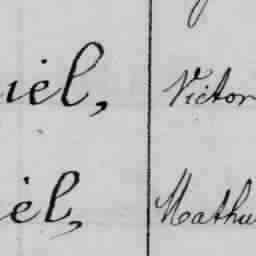 iel, Victor
iel, Mathu